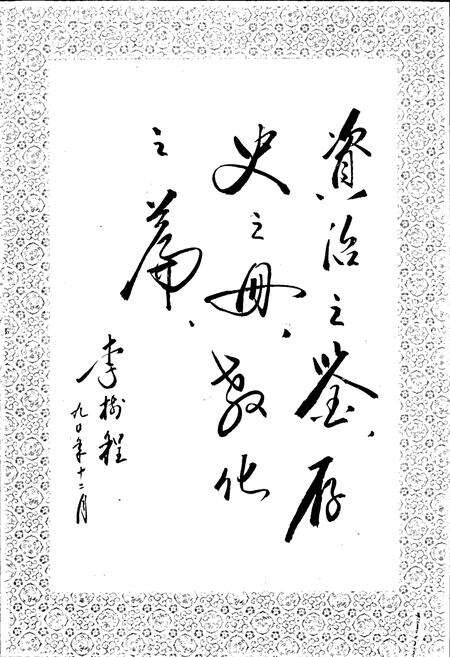 資治之鉴、存
史之冊、教化
之篇、
李樹程
九〇年十二月